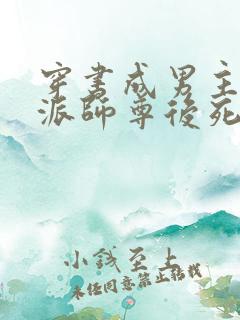 穿書成男主
派師尊後死
小錢至上
未經同意禁止轉載